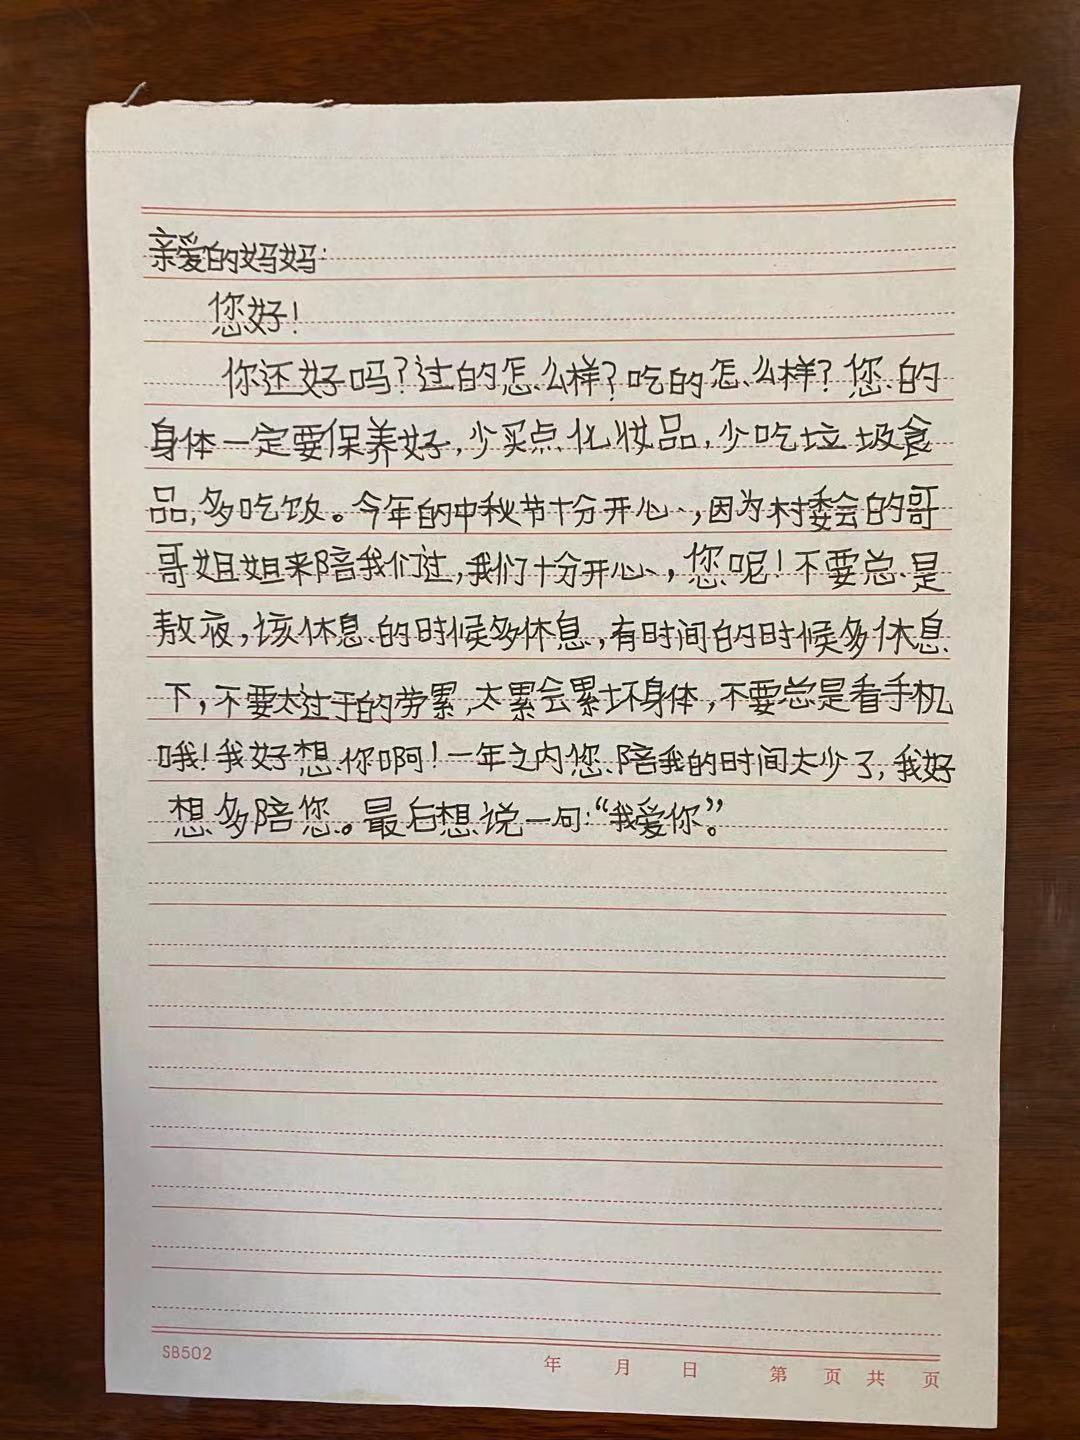 亲爱的妈妈:
您好!
你还好吗?过的怎么样?吃的怎么样?您的
身体一定要保养好,少买点化妆品,少吃垃圾食
品,多吃饭。今年的中秋节十分开心,因为村委会的哥
哥姐姐来陪我们过,我们十分开心,您呢!不要总是
熬夜,该休息的时候多休息,有时间的时候多休息
下,不要太过于的劳累,太累会累坏身体,不要总是看手机
哦!我好想你啊!一年之内您陪我的时间太少了,我好
想多陪您。最后想说一句:“我爱你”。
SB502
年 月 日 第 页 共 页